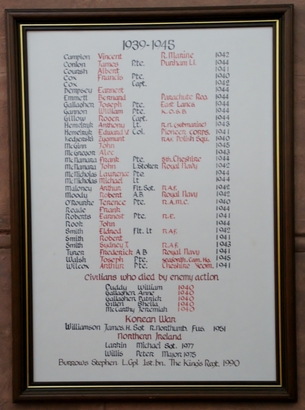 1939-1945
Campion Vincent R. Marine 1942
Conlon James Pte. Durham L.I. 1944
Courish Albert 1941
Cox Francis Pte. 1940
Cox Capt. 1942
Dempsey Earnest
Emmett Bernard Parachute Reg. 1944
Gallagher Joseph Pte. East Lancs 1944
Gannon William Pte. K.O.S.B. 1944
Gillow Roger Capt. 1944
Hemelryk Anthony Lt. R.N. (submarine) 1943
Hemelryk Edward V Col. Pioneer Corps. 1941
Zygmunt R.A.F. Polish Sqn. 1940
McGinn John 1945
McGregor Alec 1943
McNamara Frank Pte. Cheshire 1944
McNamara John L. Stoker Royal Navy 1942
McNicholas Lawrence Pte
McNicholas Michael Lt 1944
Maloney Arthur Flt. Sgt. R.A.F. 1942
Moody Robert A.B Royal Navy 1942
O'Rourke Terence Pte. R.A.M.C. 1940
Reade Frank 1944
Roberts Earnest Pte. R.E. 1941
Rook John 1944
Smith Eldred Flt. Lt R.A.F. 1942
Smith Robert 1941
Smith Sydney J. R.A.F. 1943
Turen Frederick A.B Royal Navy 1941
Walsh Joseph Pte. Seaforth. Cam. Hg. 1945
Wilcox Arthur Pte. Cheshire Yeom. 1941
Civilians who died by enemy action
Duddy William 1940
Gallagher Anne 1940
Gallagher Patrick 1940
Gillen Sheila 1940
McCarthy Jeremiah 1940
Korean War
Williamson James. H. Sgt R. Northumb. Fus. 1951
Northern Ireland
Larkin Michael Sgt. 1977
Willis Peter Major 1975
Burrows Stephen L.Cpl 1st. bn. The King's Regt. 1990